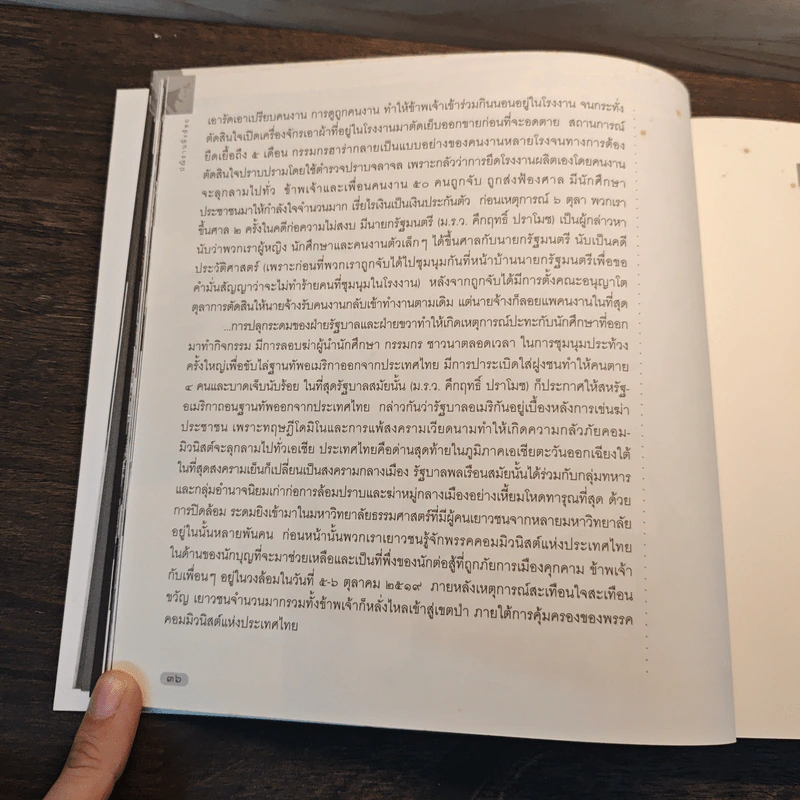 เอารัดเอาเปรียบคนงาน การดูถูกคนงาน ทำให้ข้าพเจ้าเข้าร่วมกินนอนอยู่ในโรงงาน จนกระทั่ง
ตัดสินใจเปิดเครื่องจักรเอาผ้าที่อยู่ในโรงงานมาตัดเย็บออกขายก่อนที่จะอดตาย สถานการณ์
ยืดเยื้อถึง ๕ เดือน กรรมกรฮาร่ากลายเป็นแบบอย่างของคนงานหลายโรงจนทางการต้อง
ตัดสินใจปราบปรามโดยใช้ตำรวจปราบจลาจล เพราะกลัวว่าการยึดโรงงานผลิตเองโดยคนงาน
จะลุกลามไปทั่ว ข้าพเจ้าและเพื่อนคนงาน ๕๐ คนถูกจับ ถูกส่งฟ้องศาล มีนักศึกษา
ประชาชนมาให้กำลังใจจำนวนมาก เรี่ยไรเงินเป็นเงินประกันตัว ก่อนเหตุการณ์ ๖ ตุลา พวกเรา
ขึ้นศาล ๒ ครั้งในคดีก่อความไม่สงบ มีนายกรัฐมนตรี (ม.ร.ว. คึกฤทธิ์ ปราโมช) เป็นผู้กล่าวหา
นับว่าพวกเราผู้หญิง นักศึกษาและคนงานตัวเล็กๆ ได้ขึ้นศาลกับนายกรัฐมนตรี นับเป็นคดี
ประวัติศาสตร์ (เพราะก่อนที่พวกเราถูกจับได้ไปชุมนุมกันที่หน้าบ้านนายกรัฐมนตรีเพื่อขอ
คำมั่นสัญญาว่าจะไม่ทำร้ายคนที่ชุมนุมในโรงงาน) หลังจากถูกจับได้มีการตั้งคณะอนุญาโต
ตุลาการตัดสินให้นายจ้างรับคนงานกลับเข้าทำงานตามเดิม แต่นายจ้างก็ลอยแพคนงานในที่สุด
...การปลุกระดมของฝ่ายรัฐบาลและฝ่ายขวาทำให้เกิดเหตุการณ์ปะทะกับนักศึกษาที่ออก
มาทำกิจกรรม มีการลอบฆ่าผู้นำนักศึกษา กรรมกร ชาวนาตลอดเวลา ในการชุมนุมประท้วง
ครั้งใหญ่เพื่อขับไล่ฐานทัพอเมริกาออกจากประเทศไทย มีการปาระเบิดใส่ฝูงชนทำให้คนตาย
๔ คนและบาดเจ็บนับร้อย ในที่สุดรัฐบาลสมัยนั้น (ม.ร.ว. คึกฤทธิ์ ปราโมช) ก็ประกาศให้สหรัฐ-
อเมริกาถอนฐานทัพออกจากประเทศไทย กล่าวกันว่ารัฐบาลอเมริกันอยู่เบื้องหลังการเข่นฆ่า
ประชาชน เพราะทฤษฎีโดมิโนและการแพ้สงครามเวียดนามทำให้เกิดความกลัวภัยคอม-
มิวนิสต์จะลุกลามไปทั่วเอเชีย ประเทศไทยคือด่านสุดท้ายในภูมิภาคเอเชียตะวันออกเฉียงใต้
ในที่สุดสงครามเย็นก็เปลี่ยนเป็นสงครามกลางเมือง รัฐบาลพลเรือนสมัยนั้นได้ร่วมกับกลุ่มทหาร
และกลุ่มอำนาจนิยมเก่าก่อการล้อมปราบและฆ่าหมู่กลางเมืองอย่างเหี้ยมโหดทารุณที่สุด ด้วย
การปิดล้อม ระดมยิงเข้ามาในมหาวิทยาลัยธรรมศาสตร์ที่มีผู้คนเยาวชนจากหลายมหาวิทยาลัย
อยู่ในนั้นหลายพันคน ก่อนหน้านั้นพวกเราเยาวชนรู้จักพรรคคอมมิวนิสต์แห่งประเทศไทย
ในด้านของนักบุญที่จะมาช่วยเหลือและเป็นที่พึ่งของนักต่อสู้ที่ถูกภัยการเมืองคุกคาม ข้าพเจ้า
กับเพื่อนๆ อยู่ในวงล้อมในวันที่ ๕-๖ ตุลาคม ๒๕๑๙ ภายหลังเหตุการณ์สะเทือนใจสะเทือน
ขวัญ เยาวชนจำนวนมากรวมทั้งข้าพเจ้าก็หลั่งไหลเข้าสู่เขตป่า ภายใต้การคุ้มครองของพรรค
คอมมิวนิสต์แห่งประเทศไทย
๓๖